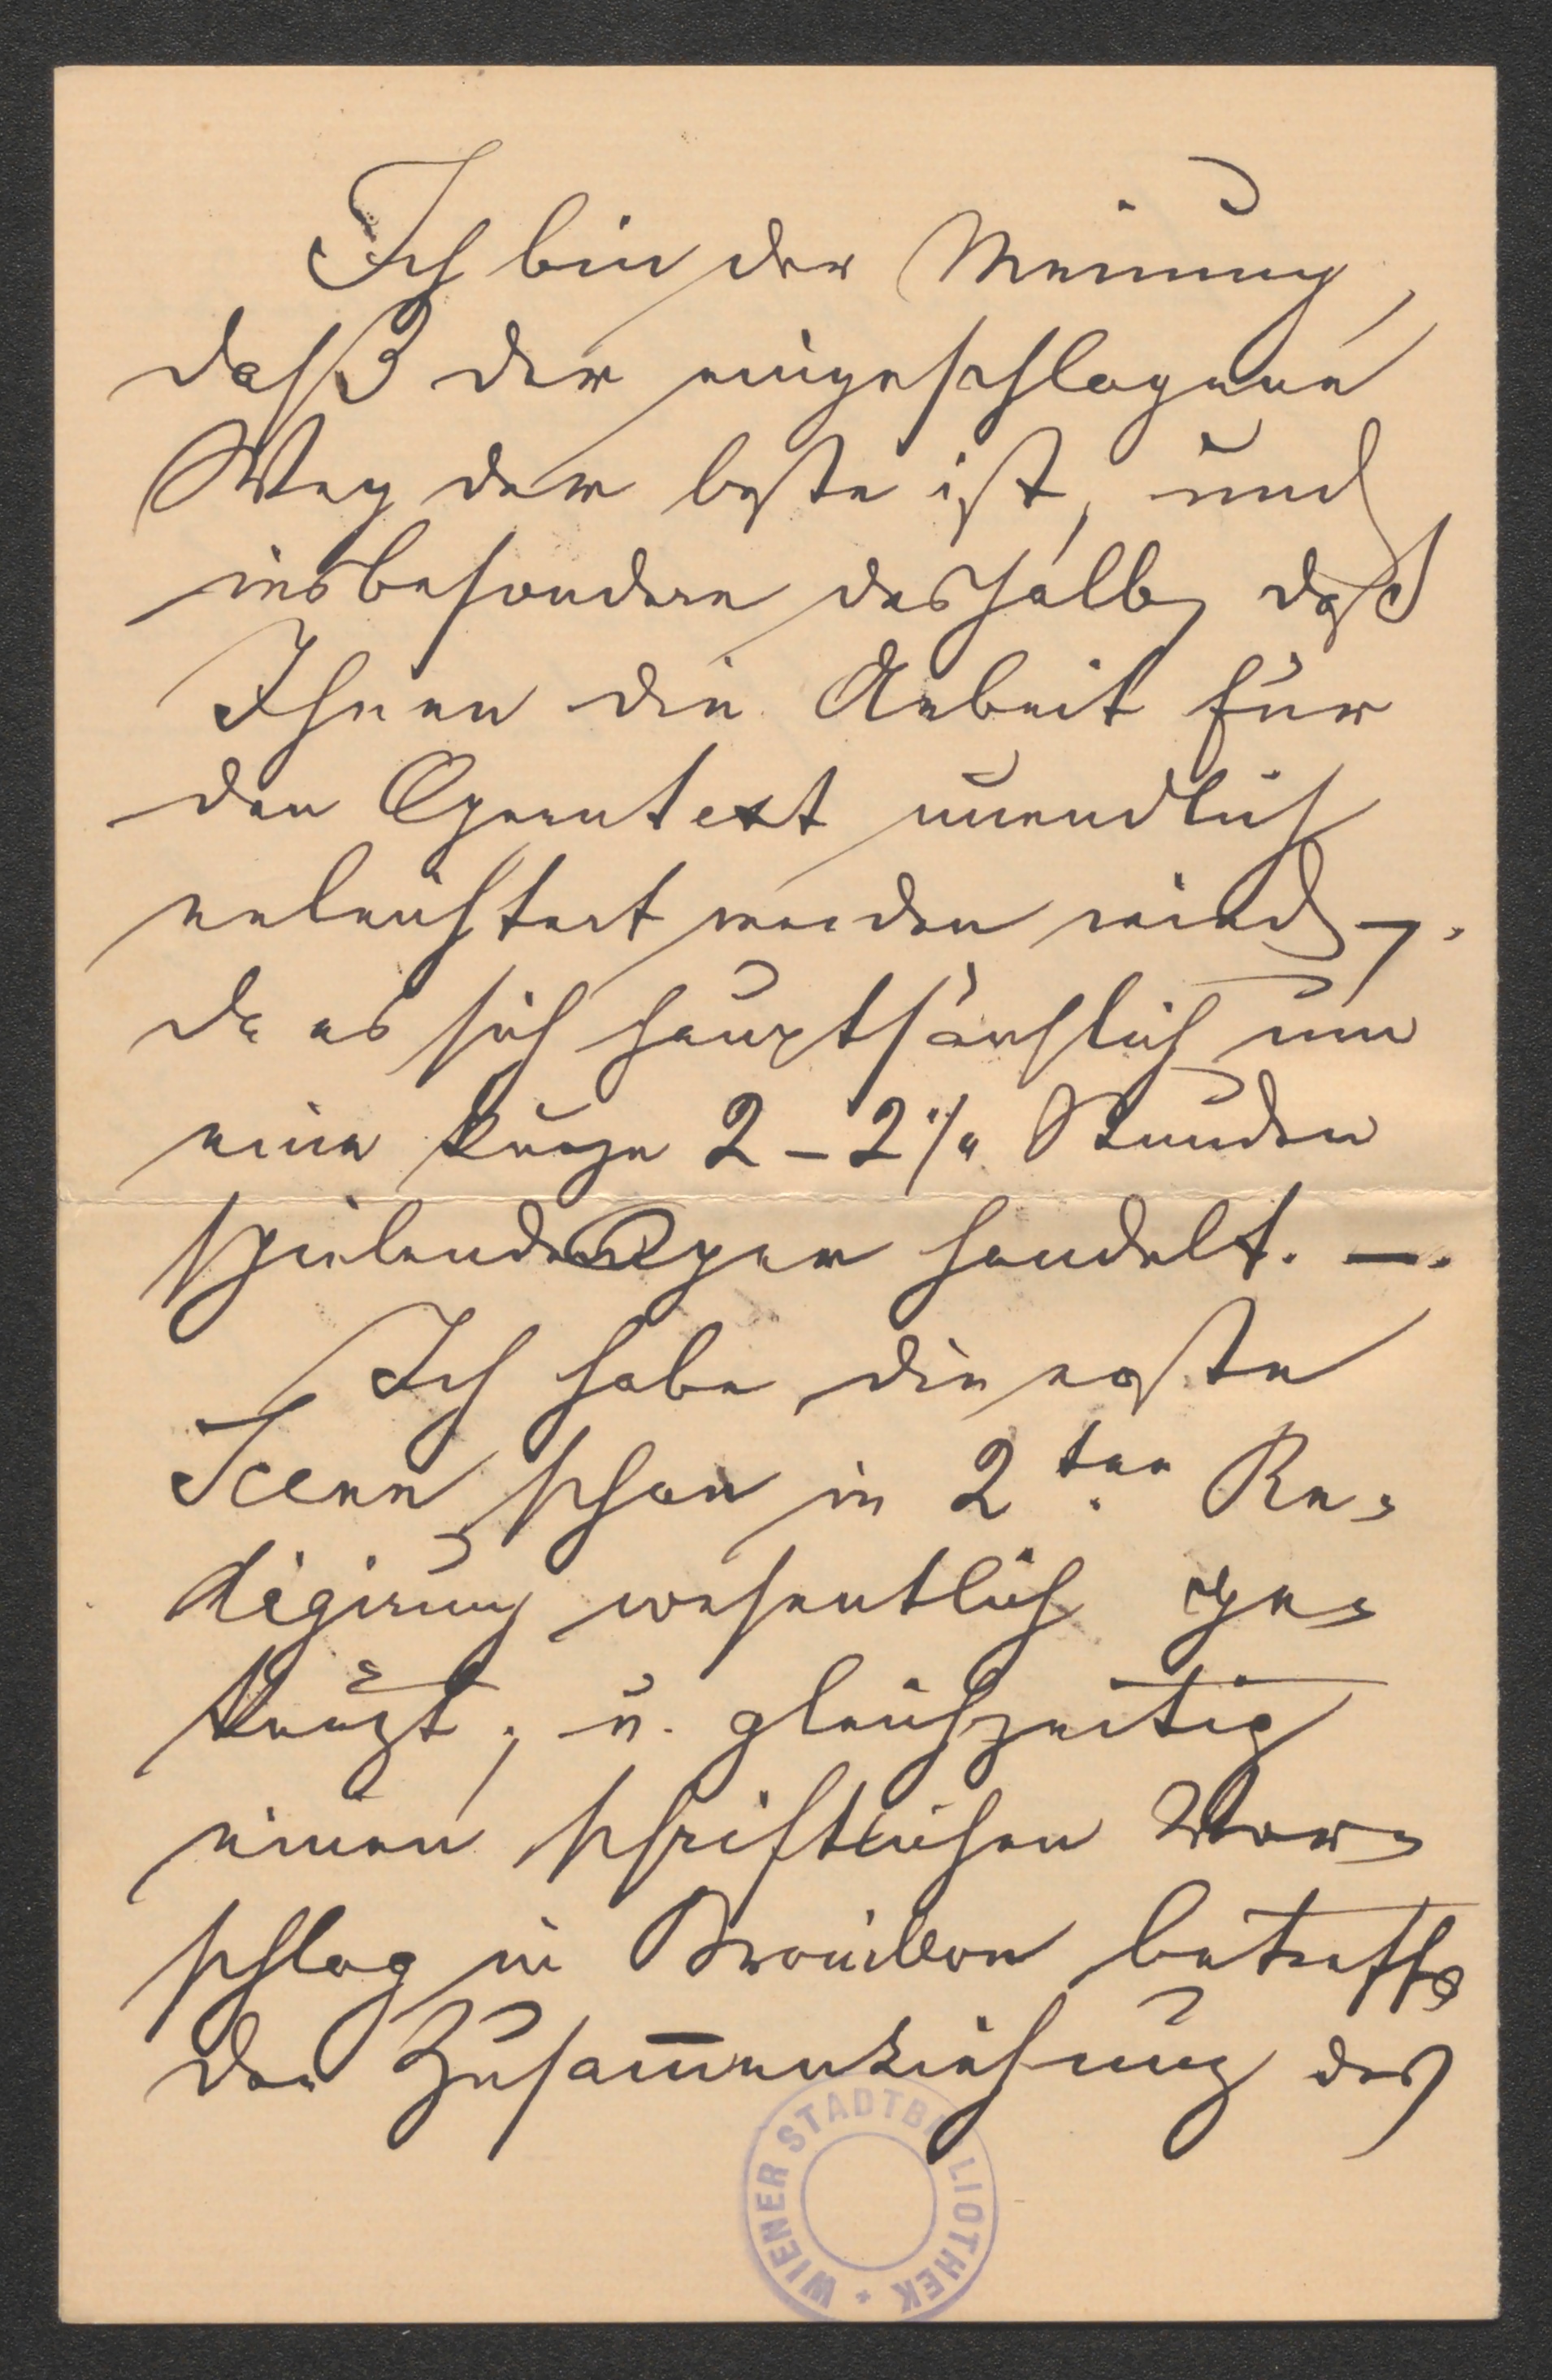 Ich bin der Meinung,
daß der eingeschlagene
Weg der beste ist, und
insbesondere deshalb, daß
Ihnen die Arbeit für
den Operntext unendlich
erleichtert werden wird, –.
da es sich hauptsächlich um
eine kurze 2–2¼ Stunden
spielende Oper handelt. –.
Ich habe die erste
Scene schon in 2ter Re-
digirung wesentlich ge-
kürzt, u. gleichzeitig
einen schriftlichen Vor-
schlag in Brouillon betreffs
der Zusam̅enziehung des
WIENER STADTBIBLIOTHEK *